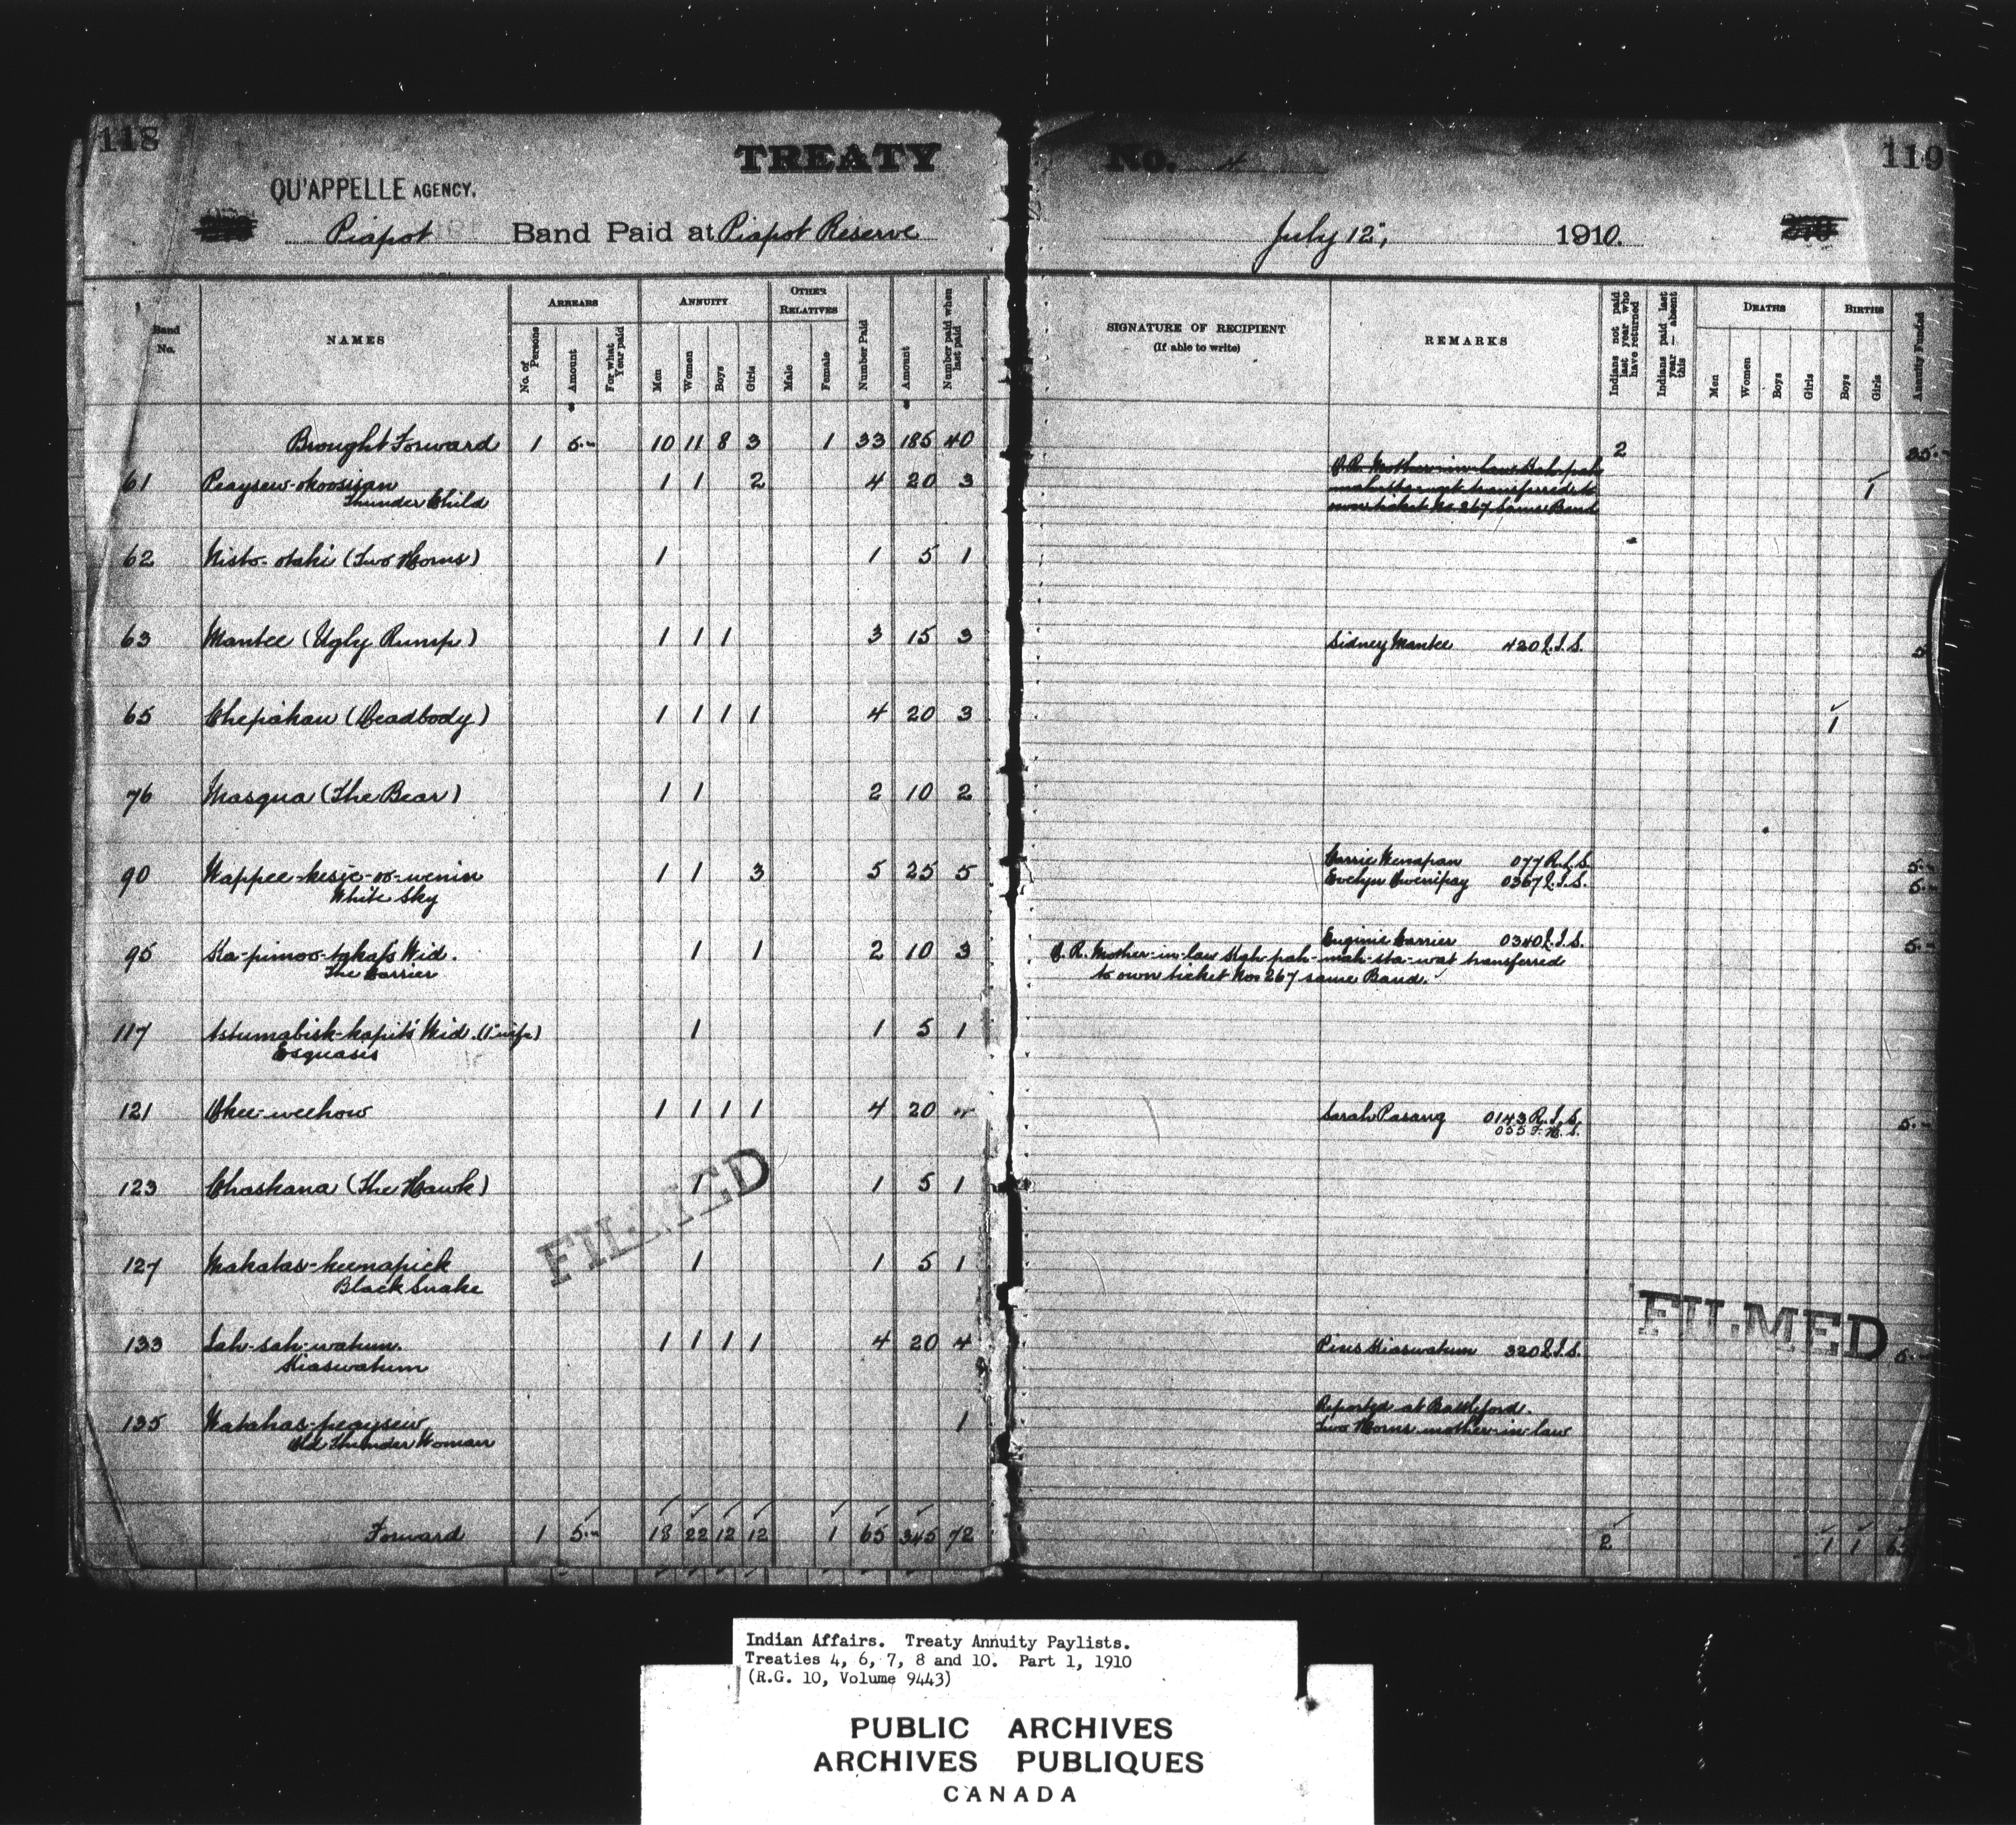 118
TREATY
No. 4
119
QU'APPELLE AGENCY.
Piapot Band Paid at Piapot Reserve
July 12", 1910.
Band No.
NAMES
ARREARS
No. of Persons
Amount
For what Year paid
ANNUITY
Men
Women
Boys
Girls
OTHER RELATIVES
Male
Female
Number Paid
Amount
Number paid when last paid
SIGNATURE OF RECIPIENT
(If able to write)
REMARKS
Indians not paid last year — who have returned
Indians paid last year — absent this
DEATHS
Men
Women
Boys
Girls
BIRTHS
Boys
Girls
Annuity Funded
Brought Forward 1 5.- 10 11 8 3 1 33 185 40 2 35.-
61 Peaysew-okoosisan 1 1 2 4 20 3 1
Thunder Child
transferred to
own ticket No. 267 Same Band
62 Nisto-otski (Two Horns) 1 1 5 1
63 Mantee (Ugly Rump) 1 1 1 3 15 3 Sidney Mantee 420 I.S. 5
65 Chepiakan (Deadbody) 1 1 1 1 4 20 3 1
76 Masqua (The Bear) 1 1 2 10 2
Carrie Wenapan 077 R.I.S. 5.-
90 Wappee-kesic-oo-wenin 1 1 3 5 25 5 Evelyn 0367 I.S. 5.-
White Sky
Euginie Carrier 0340 I.S. 5.-
95 Ka-pimoo-tahat's Wid. 1 1 2 10 3 Mother-in-law transferred
The Carrier to own ticket No. 267 same Band.
117 Wid. (1" wife) 1 1 5 1
Esquasis
121 Okee-weehow 1 1 1 1 4 20 4 Sarah Pasang 0143 R.I.S. 5.-
055 F.H.S.
123 Chaskana (The Hawk) 1 1 5 1
127 Makatas-keenapick 1 1 5 1
Black Snake
133 Sah-sah-watum. 1 1 1 1 4 20 4 Pius Kiaswatum 320 I.S. 5.-
Kiaswatum
Reported at Battleford.
135 Watahas-peaysew 1 Two Horns mother-in-law
Old Thunder Woman
Forward 1 5.- 18 22 12 12 1 65 345 72 2 1 1
FILMED
FILMED
Indian Affairs. Treaty Annuity Paylists.
Treaties 4, 6, 7, 8 and 10. Part 1, 1910
(R.G. 10, Volume 9443)
PUBLIC ARCHIVES
ARCHIVES PUBLIQUES
CANADA